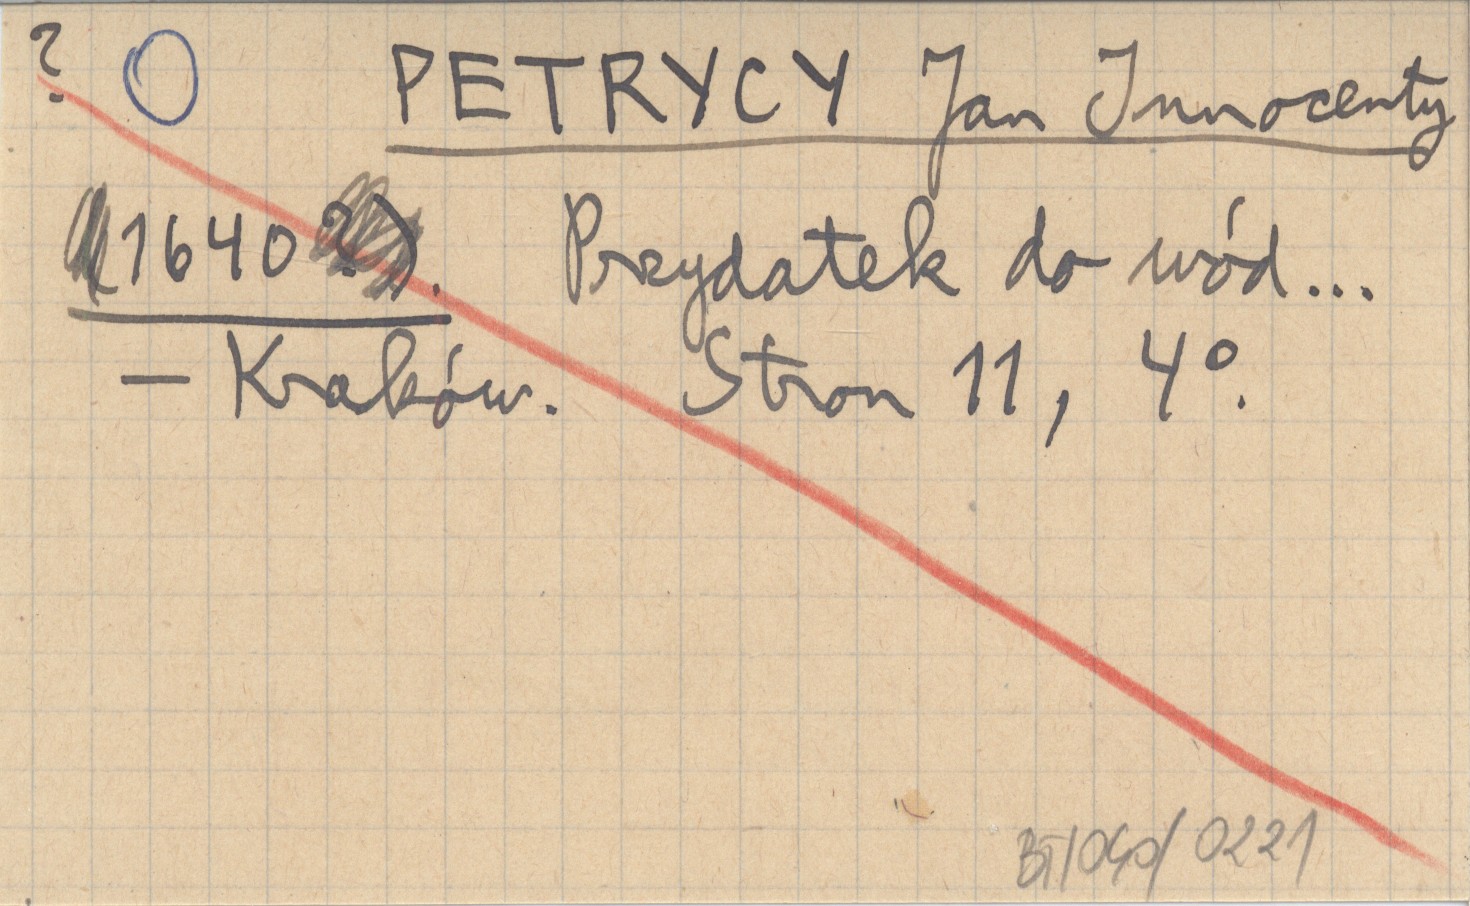 ? O PETRYCY Jan Innocenty
(1640?). Przydatek do wód...
— Kraków. Stron 11, 4°.
0221